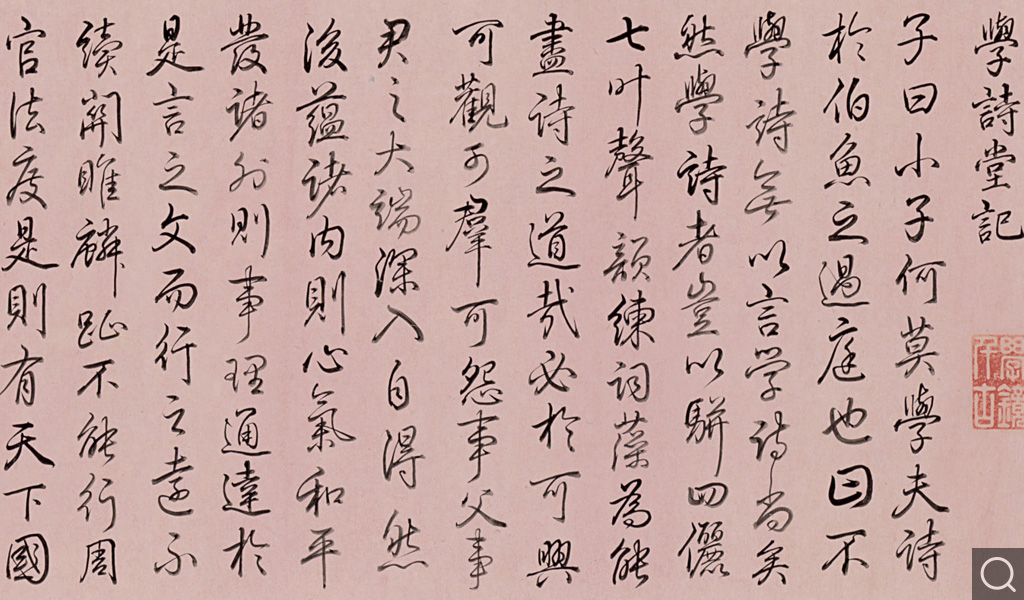 學詩堂記
子曰小子何莫學夫詩
於伯魚之過庭也曰不
學詩無以言学詩尚矣
然學詩者豈以駢四儷
七叶聲韻練詞藻為能
盡詩之道哉必於可興
可觀可羣可怨事父事
君之大端深入自得然
後蘊諸内則心氣和平
發諸外則事理通達於
是言之文而行之遠不
續關雎麟趾不能行周
官法度是則有天下國